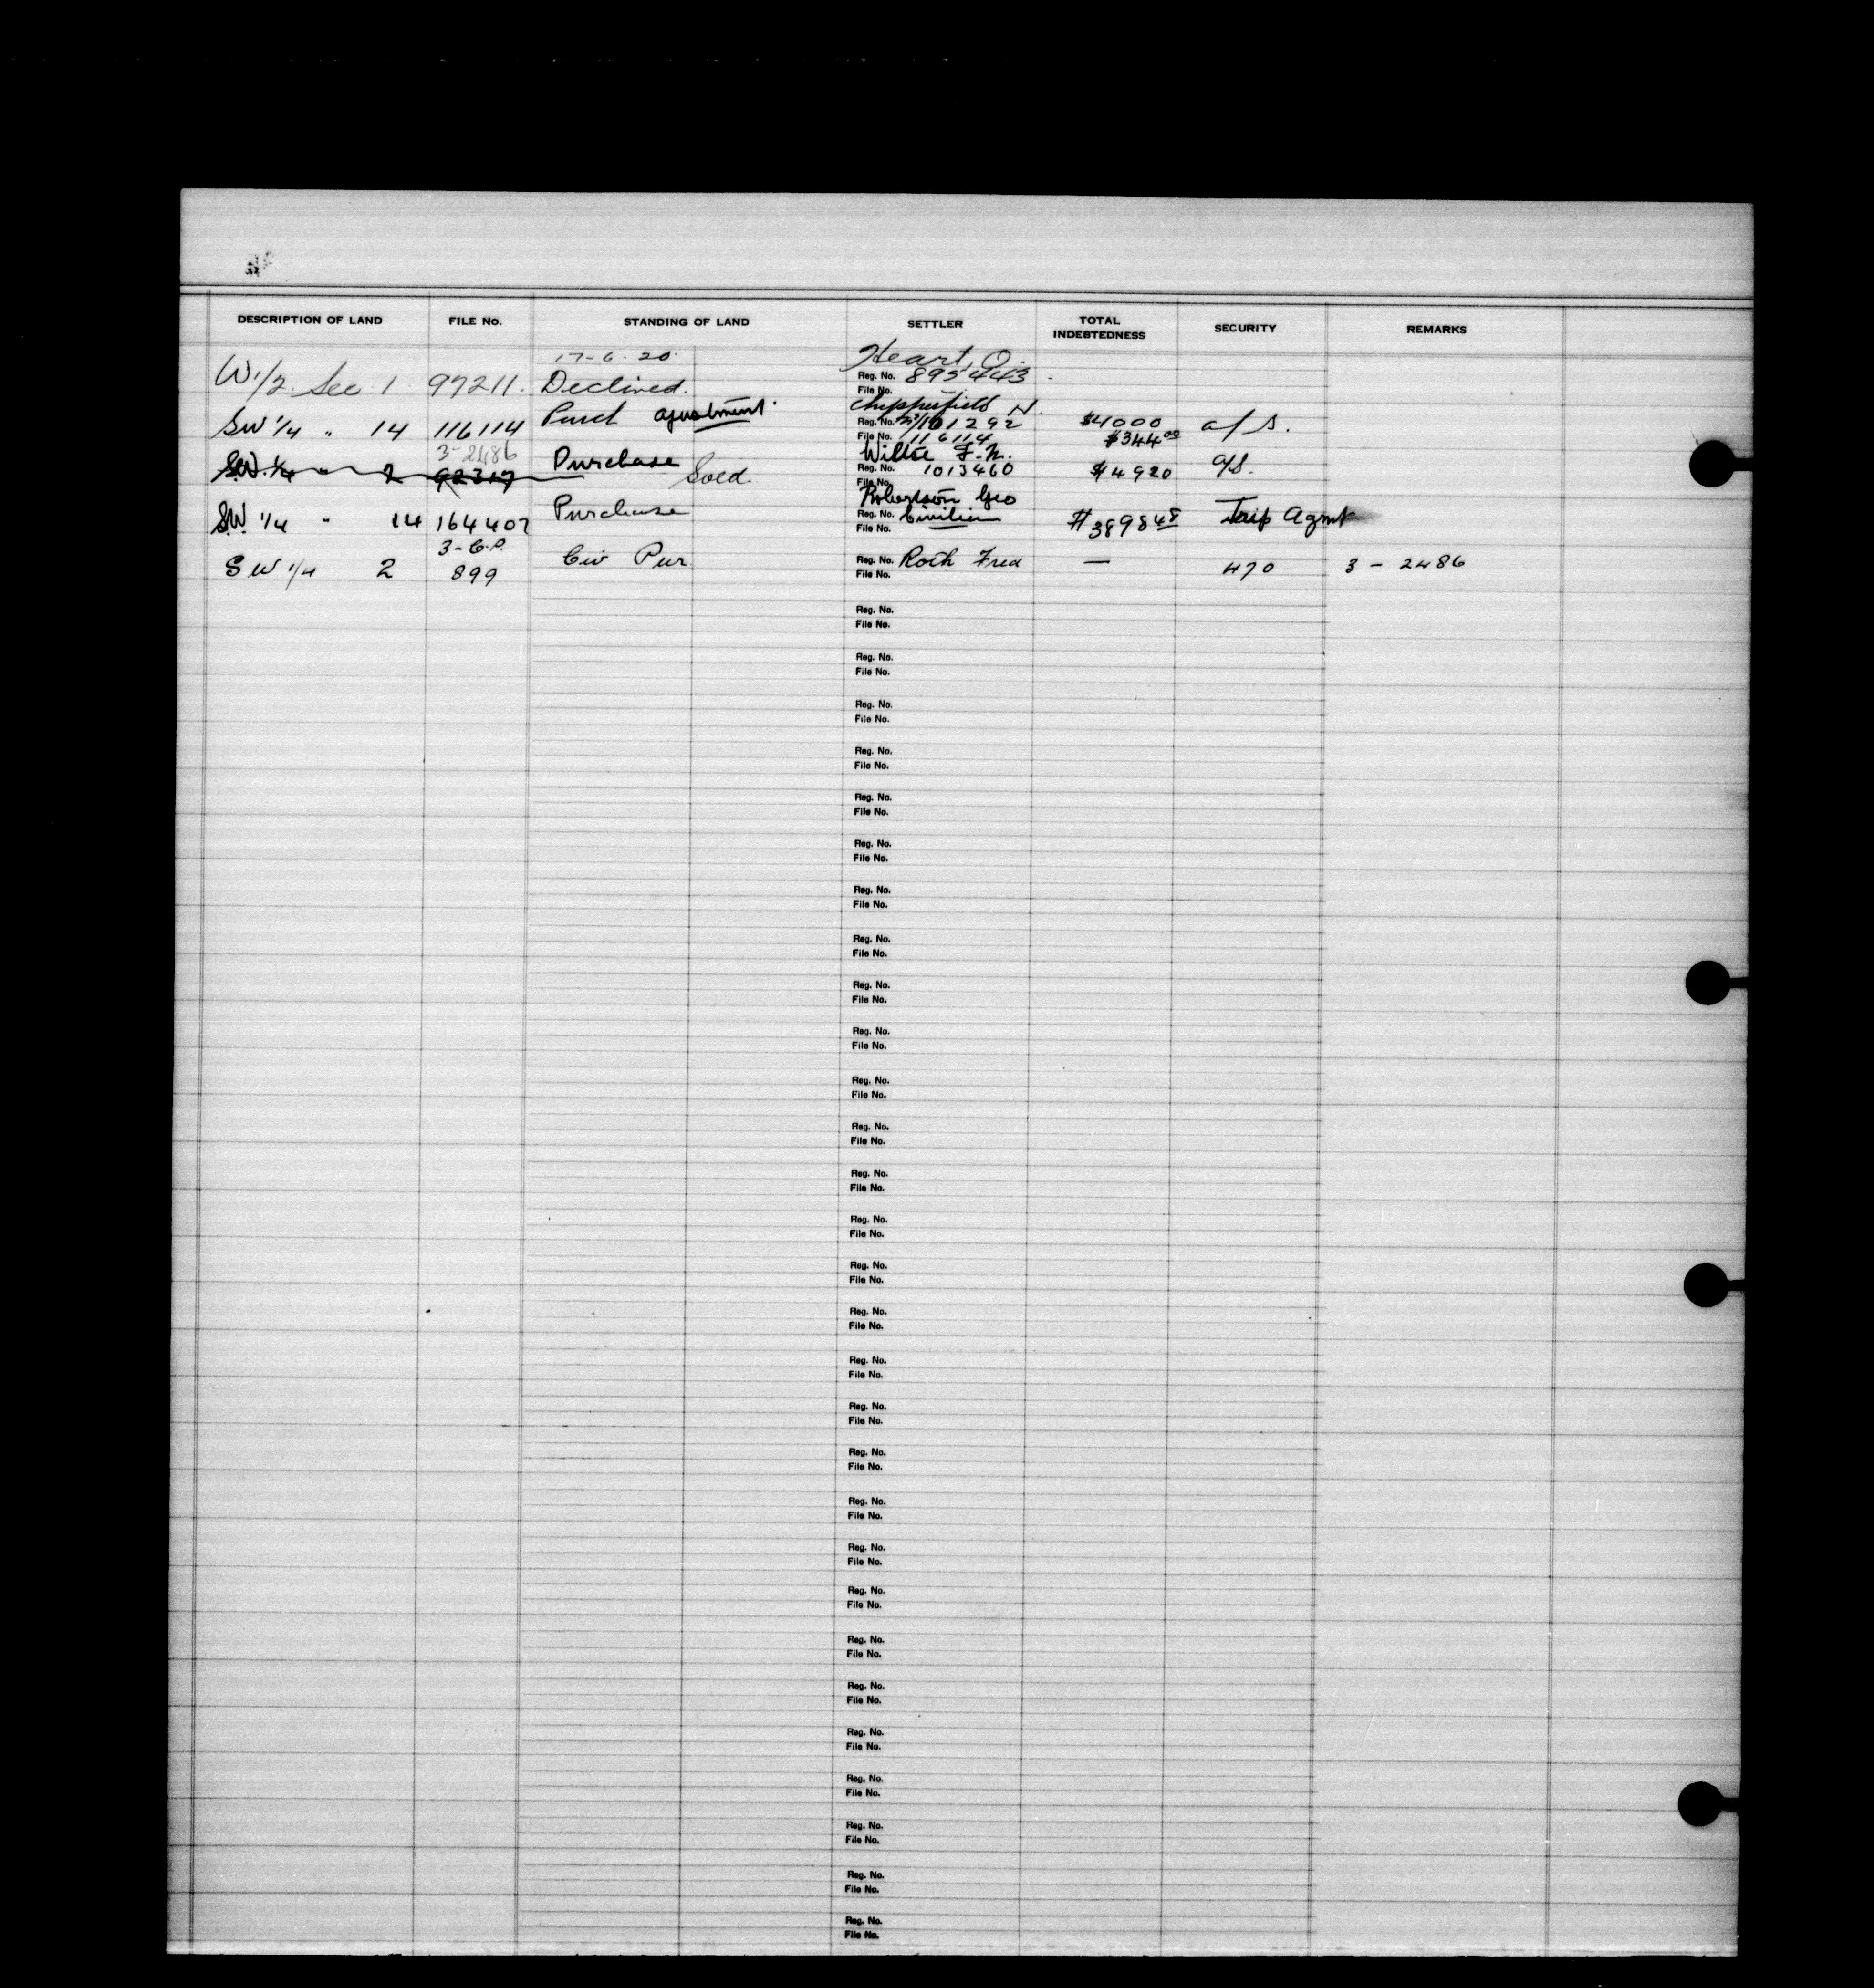 DESCRIPTION OF LAND FILE No. STANDING OF LAND SETTLER TOTAL INDEBTEDNESS SECURITY REMARKS
17-6-20. Heart, O.
W 1/2 Sec 1 97211. Declined. Reg. No. 895443
File No.
Purch ajustment. Chipperfield N.
SW 1/4 " 14 116114 Reg. No. $4000 a/s.
File No. 116114 $344 00
3-2486 Purchase Wiltse F.N.
S.W. 1/4 " 2 92317 Sold Reg. No. 1013460 $4920 a/s.
File No.
Purchase Robertson Geo
S.W. 1/4 " 14 164407 Reg. No. Civilian $3898 48 Trip Agmt
File No.
3-C.P. Civ Pur Reg. No. Roth Fred —
SW 1/4 2 899 File No. 470 3 - 2486
Reg. No.
File No.
Reg. No.
File No.
Reg. No.
File No.
Reg. No.
File No.
Reg. No.
File No.
Reg. No.
File No.
Reg. No.
File No.
Reg. No.
File No.
Reg. No.
File No.
Reg. No.
File No.
Reg. No.
File No.
Reg. No.
File No.
Reg. No.
File No.
Reg. No.
File No.
Reg. No.
File No.
Reg. No.
File No.
Reg. No.
File No.
Reg. No.
File No.
Reg. No.
File No.
Reg. No.
File No.
Reg. No.
File No.
Reg. No.
File No.
Reg. No.
File No.
Reg. No.
File No.
Reg. No.
File No.
Reg. No.
File No.
Reg. No.
File No.
Reg. No.
File No.
Reg. No.
File No.